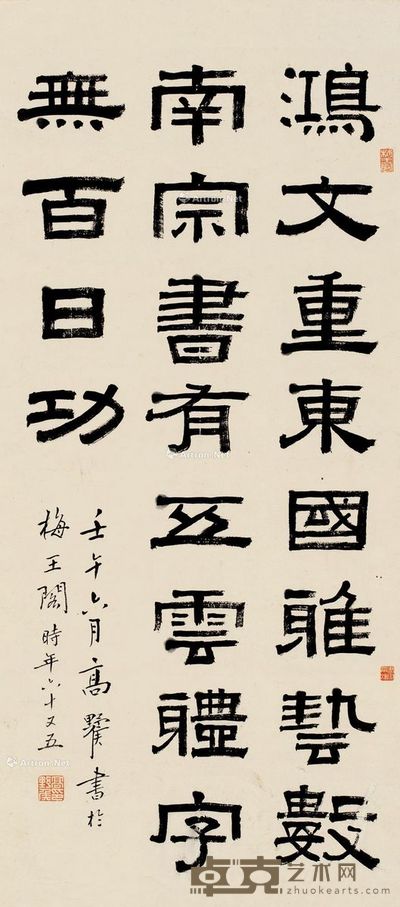 鴻文重東國雅藝數
南宗書有五雲體字
無百日功
壬午六月高野侯書於
梅王閣時年六十又五
Artron.Net
卓克艺术网
zhuokearts.com